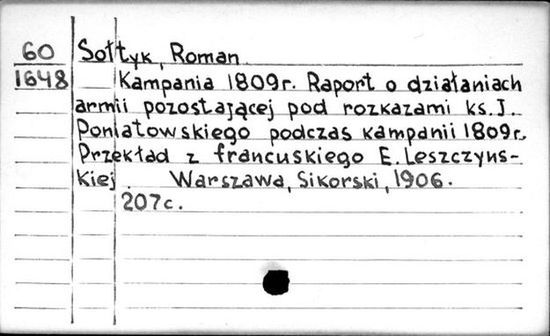 60 Sołtyk, Roman
1648 Kampania 1809r. Raport o działaniach
armii pozostającej pod rozkazami ks. J.
Poniatowskiego podczas kampanii 1809r.
Przekład z francuskiego E. Leszczyńs-
kiej. Warszawa, Sikorski, 1906.
207c.